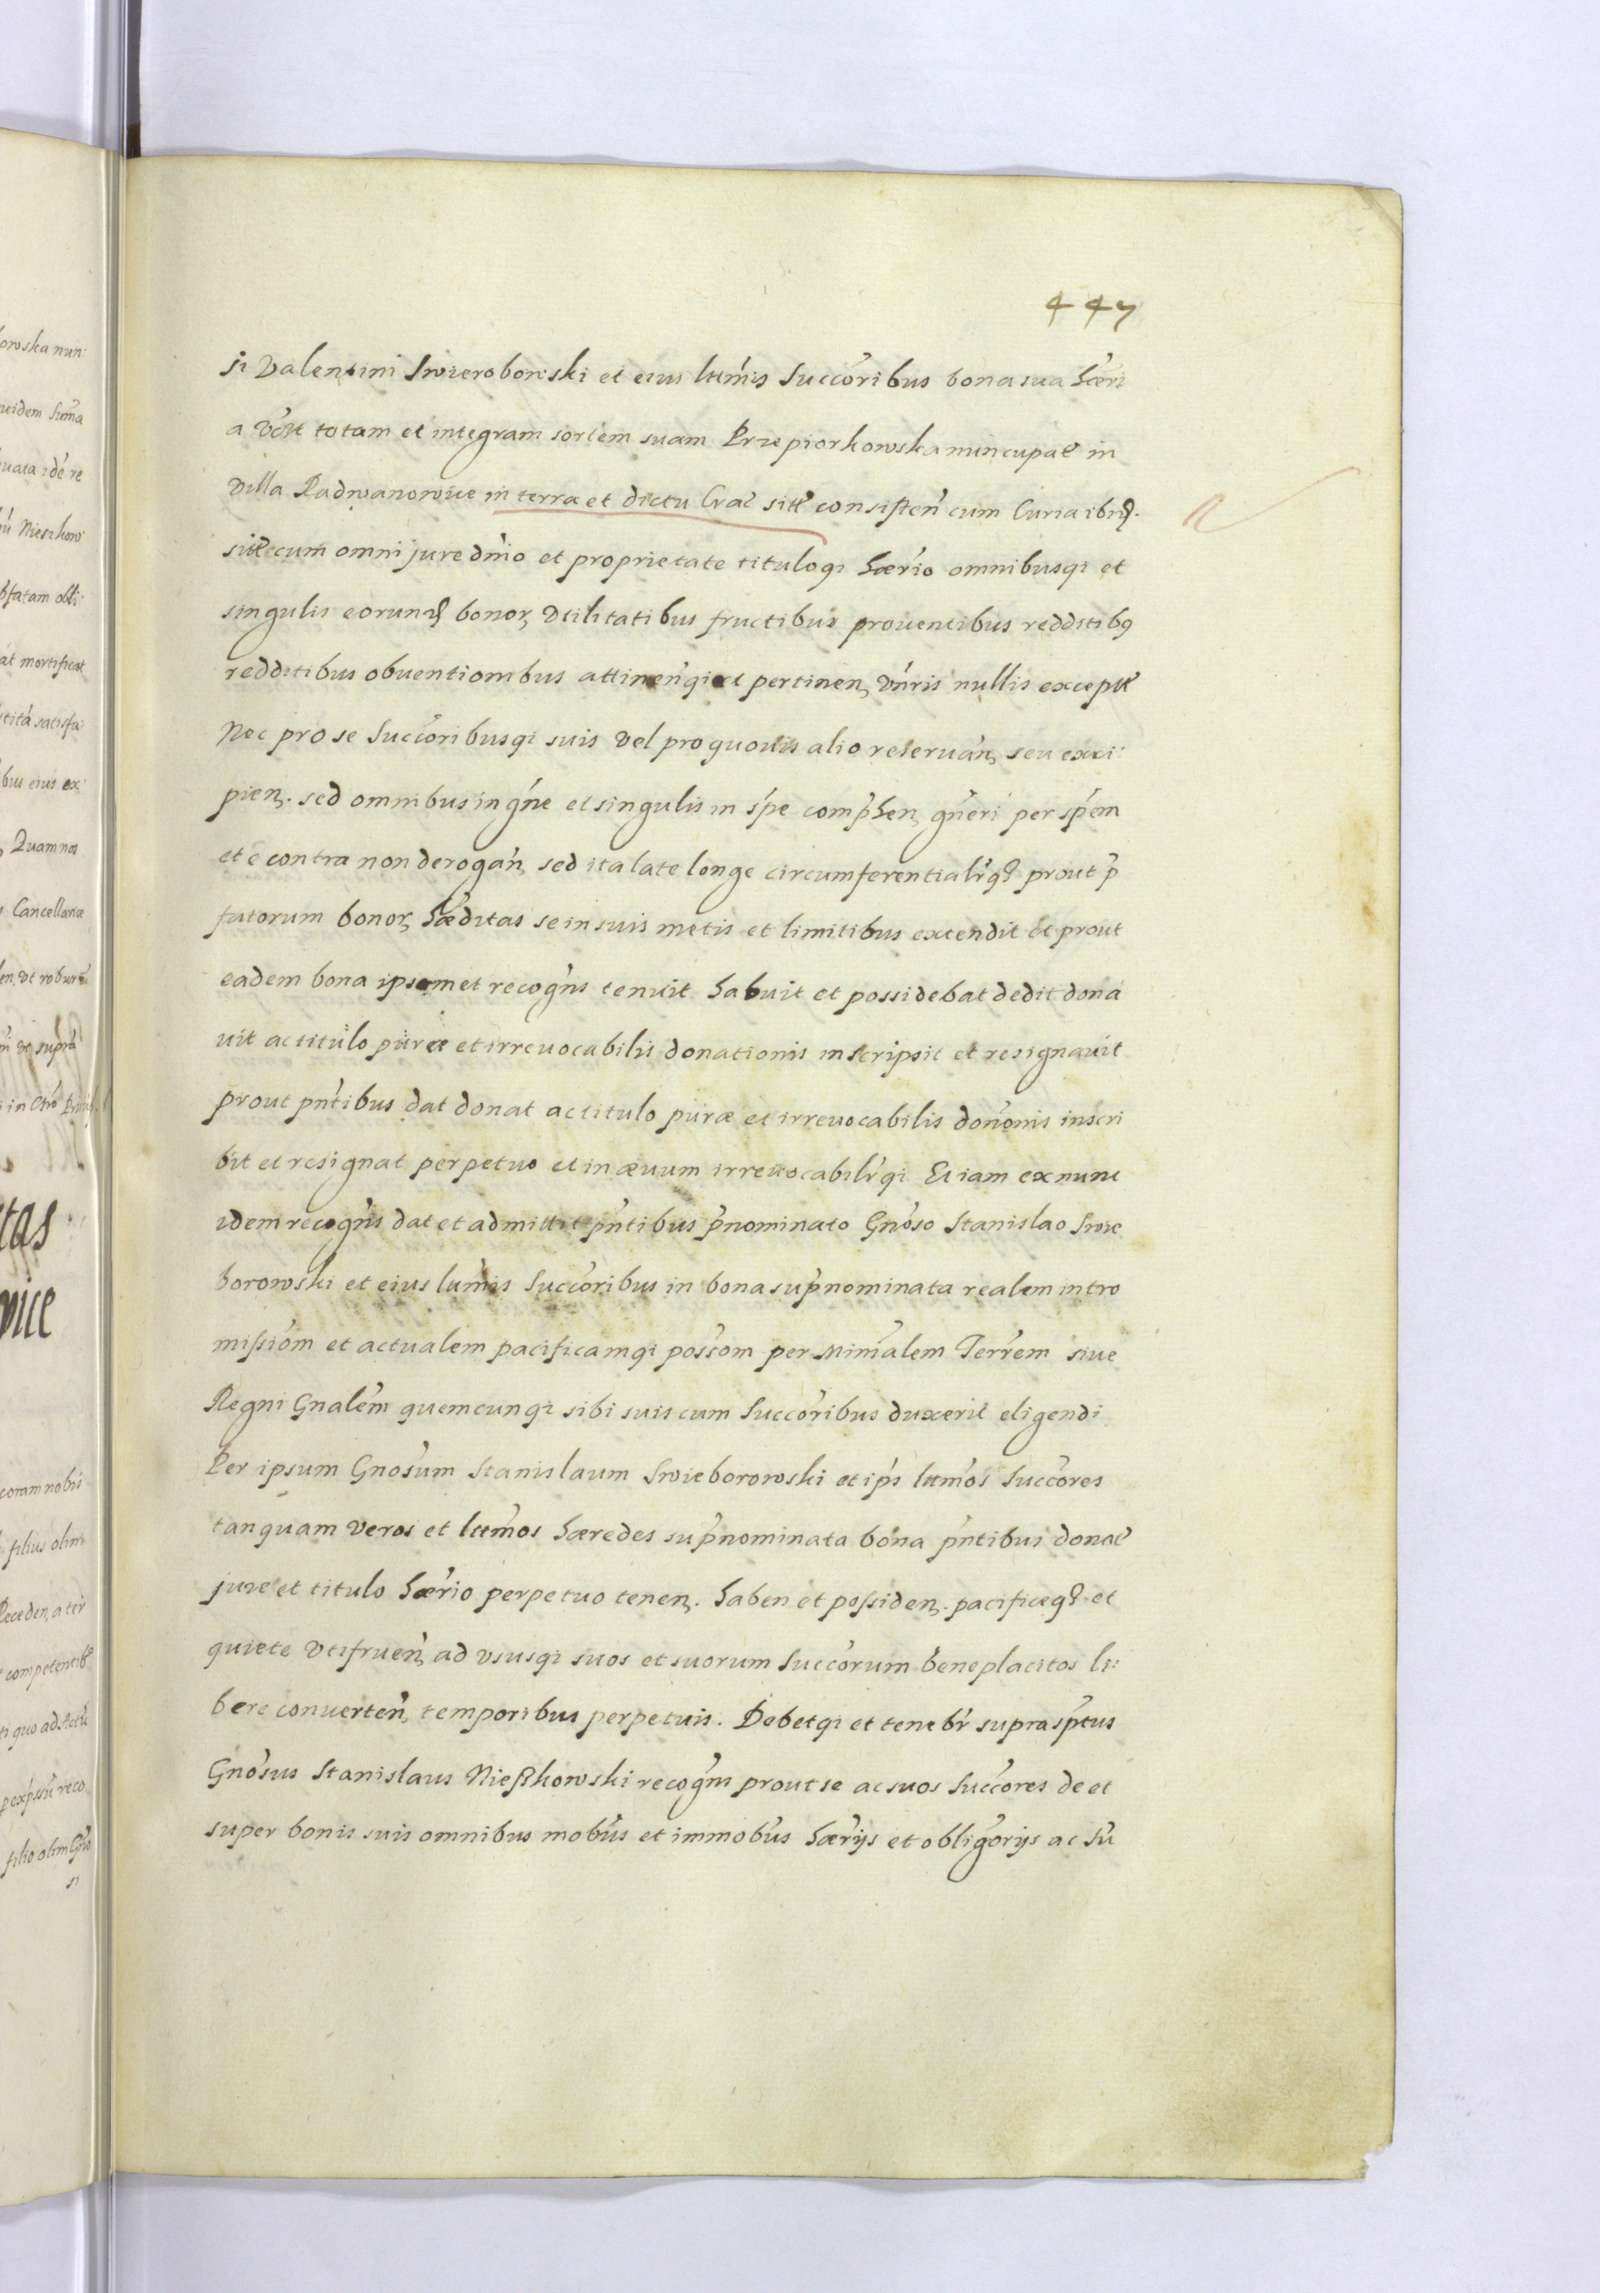 447
si Valentini Swieroborski et eius ltimis Succoribus bona sua haeri
a vdzt totam et integram sortem suam Przepiorkowska nuncupat in
villa Radwanowice in terra et dictu Crac sitt consisten cum Curia ibid.
sitt cum omni jure dnio et proprietate tituloqz haerio omnibusqz et
singulis eorund bonor, vtilitatibus fructibus prouentibus redditibus
redditibus obuentionibus attinenqz et pertinen, vnris nullis except
Nec pro se Succoribusqz suis vel pro quouis alio reseruan, seu exci:
pien. sed omnibus in gne et singulis in spe comphen, gneri per spem
et e contra non derogan, sed ita late longe circumferentialrqz prout p
fatorum bonor, haeditas se in suis metis et limitibus extendit et prout
eadem bona ipsemet recogns tenuit habuit et possidebat dedit dona
uit ac titulo purae et irreuocabilis donationis inscripsit et resignauit
prout pntibus dat donat ac titulo purae et irreuocabilis dononis inscri
bit et resignat perpetuo et in aeuum irreuocabilrqz Et iam ex nunc
idem recogns dat et admittit pntibus pnominato Gnoso Stanislao Swie
borowski et eius ltimis Succoribus in bona supnominata realem intro
missiom et actualem pacificamqz possom per Minialem Terrem siue
Regni Gnalem quemcunqz sibi suis cum Succoribus duxerit eligendi
Per ipsum Gnosum Stanislaum Swieborowski et ips ltimos Succores
tanquam veros et ltimos haeredes supnominata bona pntibus donat
jure et titulo haerio perpetuo tenen. haben et possiden. pacificeqz et
quiete vtifruen, ad vsusqz suos et suorum Succorum beneplacitos li:
bere conuerten, temporibus perpetuis. Debetqz et tenebr suprasptus
Gnosus Stanislaus Nieszkowski recogns prout se ac suos Succores de et
super bonis suis omnibus mobus et immobus haerijs et obligorijs ac su